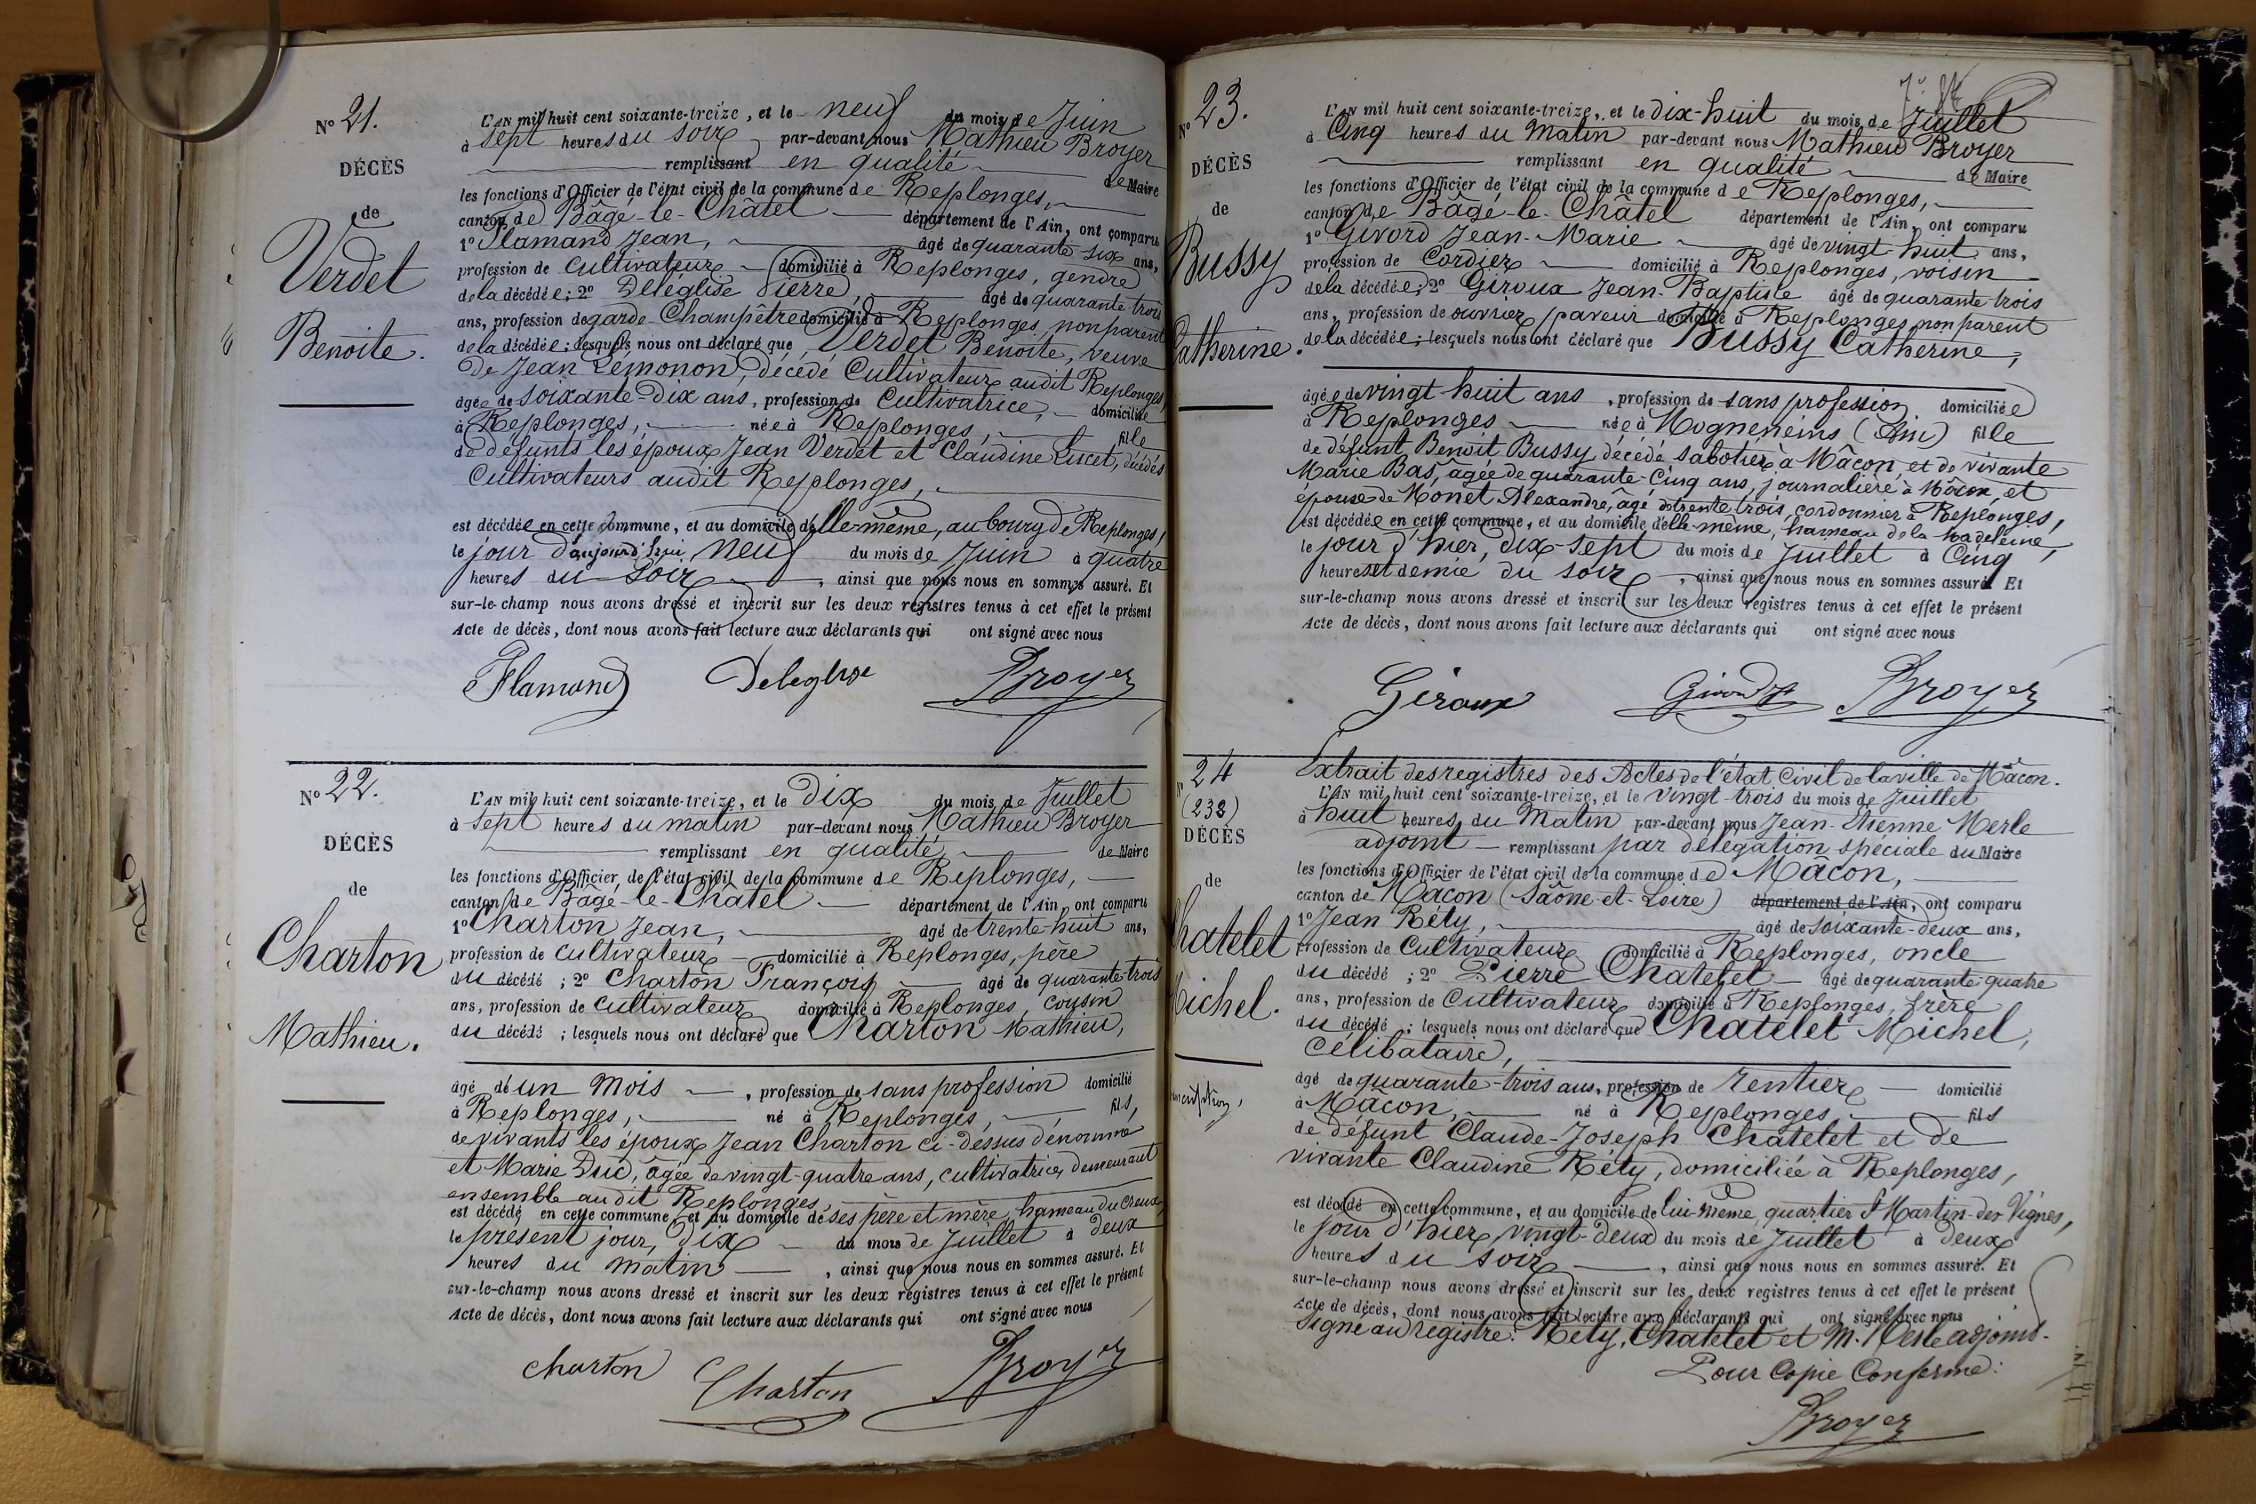 No 21.
DÉCÈS
de
Verdet
Benoite.
L'AN mil huit cent soixante-treize, et le neuf du mois de Juin
à sept heures du soir par-devant nous Mathieu Broyer
remplissant en qualité de Maire
les fonctions d'Officier de l'état civil de la commune de Replonges,
canton de Bâgé-le-Châtel département de l'Ain, ont comparu
1o Flamand Jean, âgé de quarante six ans,
profession de cultivateur domicilié à Replonges, gendre
de la décédée; 2o Deléglise Pierre, âgé de quarante trois
ans, profession de garde-Champêtre domicilié à Replonges non parent
de la décédée; lesquels nous ont déclaré que Verdet Benoite, veuve
de Jean Lémonon, décédé Cultivateur audit Replonges,
âgée de soixante-Dix ans, profession de Cultivatrice, domiciliée
à Replonges, née à Replonges, fille
de défunts les époux Jean Verdet et Claudine Lucet, décédés
Cultivateurs audit Replonges,
est décédée en cette commune, et au domicile d'elle-même, au bourg de Replonges,
le jour d'aujourd'hui neuf du mois de Juin à quatre
heures du Soir, ainsi que nous nous en sommes assuré. Et
sur-le-champ nous avons dressé et inscrit sur les deux registres tenus à cet effet le présent
Acte de décès, dont nous avons fait lecture aux déclarants qui ont signé avec nous
Flamand Deleglise Broyer
No 22.
DÉCÈS
de
Charton
Mathieu.
L'AN mil huit cent soixante-treize, et le Dix du mois de Juillet
à sept heures du matin par-devant nous Mathieu Broyer
remplissant en qualité de Maire
les fonctions d'Officier de l'état civil de la commune de Replonges,
canton de Bâgé-le-Châtel département de l'Ain, ont comparu
1o Charton Jean, âgé de trente-huit ans,
profession de cultivateur domicilié à Replonges, père
du décédé; 2o Charton François âgé de quarante-trois
ans, profession de cultivateur domicilié à Replonges, cousin
du décédé; lesquels nous ont déclaré que Charton Mathieu,
âgé de un mois, profession de sans profession domicilié
à Replonges, né à Replonges, fils,
de vivants les époux Jean Charton ci-dessus dénommé
et Marie Duc, âgée de vingt-quatre ans, cultivatrice, demeurant
ensemble audit Replonges,
est décédé en cette commune, et au domicile de ses père et mère, hameau du Creux,
le présent jour, dix du mois de Juillet à deux
heures du matin, ainsi que nous nous en sommes assuré. Et
sur-le-champ nous avons dressé et inscrit sur les deux registres tenus à cet effet le présent
Acte de décès, dont nous avons fait lecture aux déclarants qui ont signé avec nous
Charton Charton Broyer
No 23.
DÉCÈS
de
Bussy
Catherine.
L'AN mil huit cent soixante-treize, et le dix-huit du mois de Juillet
à Cinq heures du matin par-devant nous Mathieu Broyer
remplissant en qualité de Maire
les fonctions d'Officier de l'état civil de la commune de Replonges,
canton de Bâgé-le-Châtel département de l'Ain, ont comparu
1o Givord Jean-Marie âgé de vingt-huit ans,
profession de Cordier domicilié à Replonges, voisin
de la décédée; 2o Giroux Jean-Baptiste âgé de quarante trois
ans, profession de ouvrier paveur domicilié à Replonges non parent
de la décédée; lesquels nous ont déclaré que Bussy Catherine,
âgée de vingt huit ans, profession de sans profession domiciliée
à Replonges née à Mogneneins (Ain) fille
de défunt Benoit Bussy, décédé sabotier à Mâcon et de vivante
Marie Bas, âgée de quarante-Cinq ans, journalière à Mâcon, et
épouse de Monet Alexandre, âgé de trente trois, cordonnier à Replonges,
est décédée en cette commune, et au domicile d'elle-même, hameau de la Madeleine,
le jour d'hier, dix-sept du mois de Juillet à Cinq
heures et demie du soir, ainsi que nous nous en sommes assuré. Et
sur-le-champ nous avons dressé et inscrit sur les deux registres tenus à cet effet le présent
Acte de décès, dont nous avons fait lecture aux déclarants qui ont signé avec nous
Géroux Givord Broyer
No 24
(232)
DÉCÈS
de
Chatelet
Michel.
Extrait des registres des Actes de l'état Civil de la ville de Mâcon.
L'AN mil huit cent soixante-treize, et le vingt trois du mois de Juillet
à huit heures du Matin par-devant nous Jean-Etienne Merle
adjoint remplissant par délégation spéciale du Maire
les fonctions d'Officier de l'état civil de la commune de Mâcon,
canton de Macon (Saône-et-Loire) département de l'Ain, ont comparu
1o Jean Réty, âgé de soixante-deux ans,
profession de Cultivateur domicilié à Replonges, oncle
du décédé; 2o Pierre Chatelet âgé de quarante-quatre
ans, profession de Cultivateur domicilié à Replonges, frère
du décédé; lesquels nous ont déclaré que Chatelet Michel,
Célibataire,
âgé de quarante-trois ans, profession de rentier domicilié
à Macon, né à Replonges, fils
de défunt Claude-Joseph Chatelet et de
vivante Claudine Réty, domiciliée à Replonges,
est décédé en cette commune, et au domicile de lui-même, quartier St Martin-des Vignes,
le jour d'hier, vingt-deux du mois de Juillet à deux
heures du soir, ainsi que nous nous en sommes assuré. Et
sur-le-champ nous avons dressé et inscrit sur les deux registres tenus à cet effet le présent
Acte de décès, dont nous avons fait lecture aux déclarants qui ont signé avec nous
Signé au registre: Réty, Chatelet et M. Merle adjoint.
Pour Copie Conforme:
Broyer